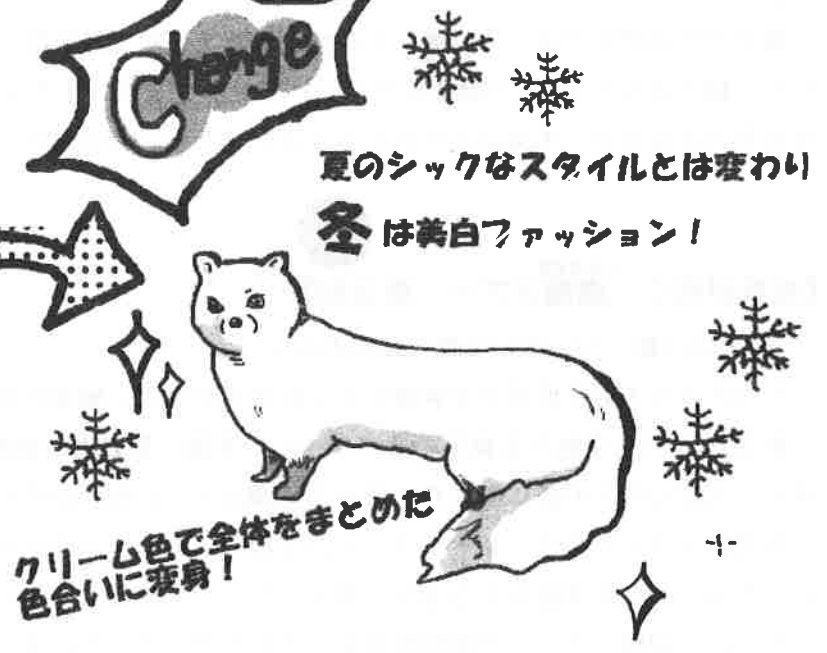 Change
夏のシックなスタイルとは変わり
冬は美白ファッション！
クリーム色で全体をまとめた
色合いに変身！